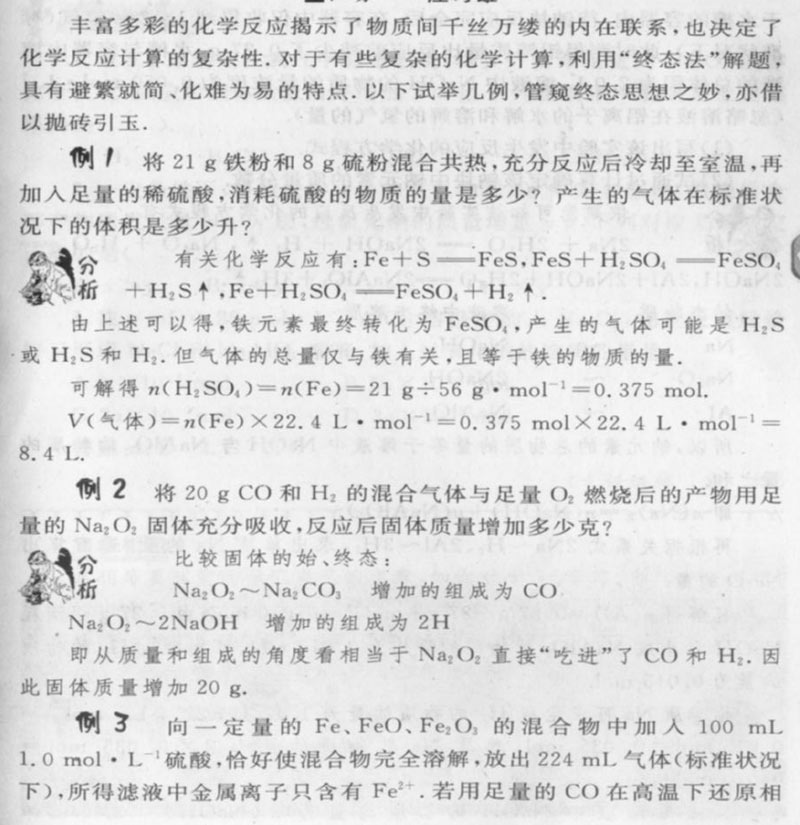 丰富多彩的化学反应揭示了物质间千丝万缕的内在联系,也决定了
化学反应计算的复杂性.对于有些复杂的化学计算,利用“终态法”解题,
具有避繁就简、化难为易的特点.以下试举几例,管窥终态思想之妙,亦借
以抛砖引玉.
例1 将 21 g 铁粉和 8 g 硫粉混合共热,充分反应后冷却至室温,再
加入足量的稀硫酸,消耗硫酸的物质的量是多少? 产生的气体在标准状
况下的体积是多少升?
分析 有关化学反应有:Fe+S══FeS,FeS+H₂SO₄══FeSO₄
+H₂S↑,Fe+H₂SO₄══FeSO₄+H₂↑.
由上述可以得,铁元素最终转化为 FeSO₄,产生的气体可能是 H₂S
或 H₂S 和 H₂.但气体的总量仅与铁有关,且等于铁的物质的量.
可解得 n(H₂SO₄)=n(Fe)=21 g÷56 g·mol⁻¹=0.375 mol.
V(气体)=n(Fe)×22.4 L·mol⁻¹=0.375 mol×22.4 L·mol⁻¹=
8.4 L.
例2 将 20 g CO 和 H₂ 的混合气体与足量 O₂ 燃烧后的产物用足
量的 Na₂O₂ 固体充分吸收,反应后固体质量增加多少克?
分析 比较固体的始、终态:
Na₂O₂~Na₂CO₃ 增加的组成为 CO
Na₂O₂~2NaOH 增加的组成为 2H
即从质量和组成的角度看相当于 Na₂O₂ 直接“吃进”了 CO 和 H₂.因
此固体质量增加 20 g.
例3 向一定量的 Fe、FeO、Fe₂O₃ 的混合物中加入 100 mL
1.0 mol·L⁻¹硫酸,恰好使混合物完全溶解,放出 224 mL 气体(标准状况
下),所得滤液中金属离子只含有 Fe²⁺.若用足量的 CO 在高温下还原相